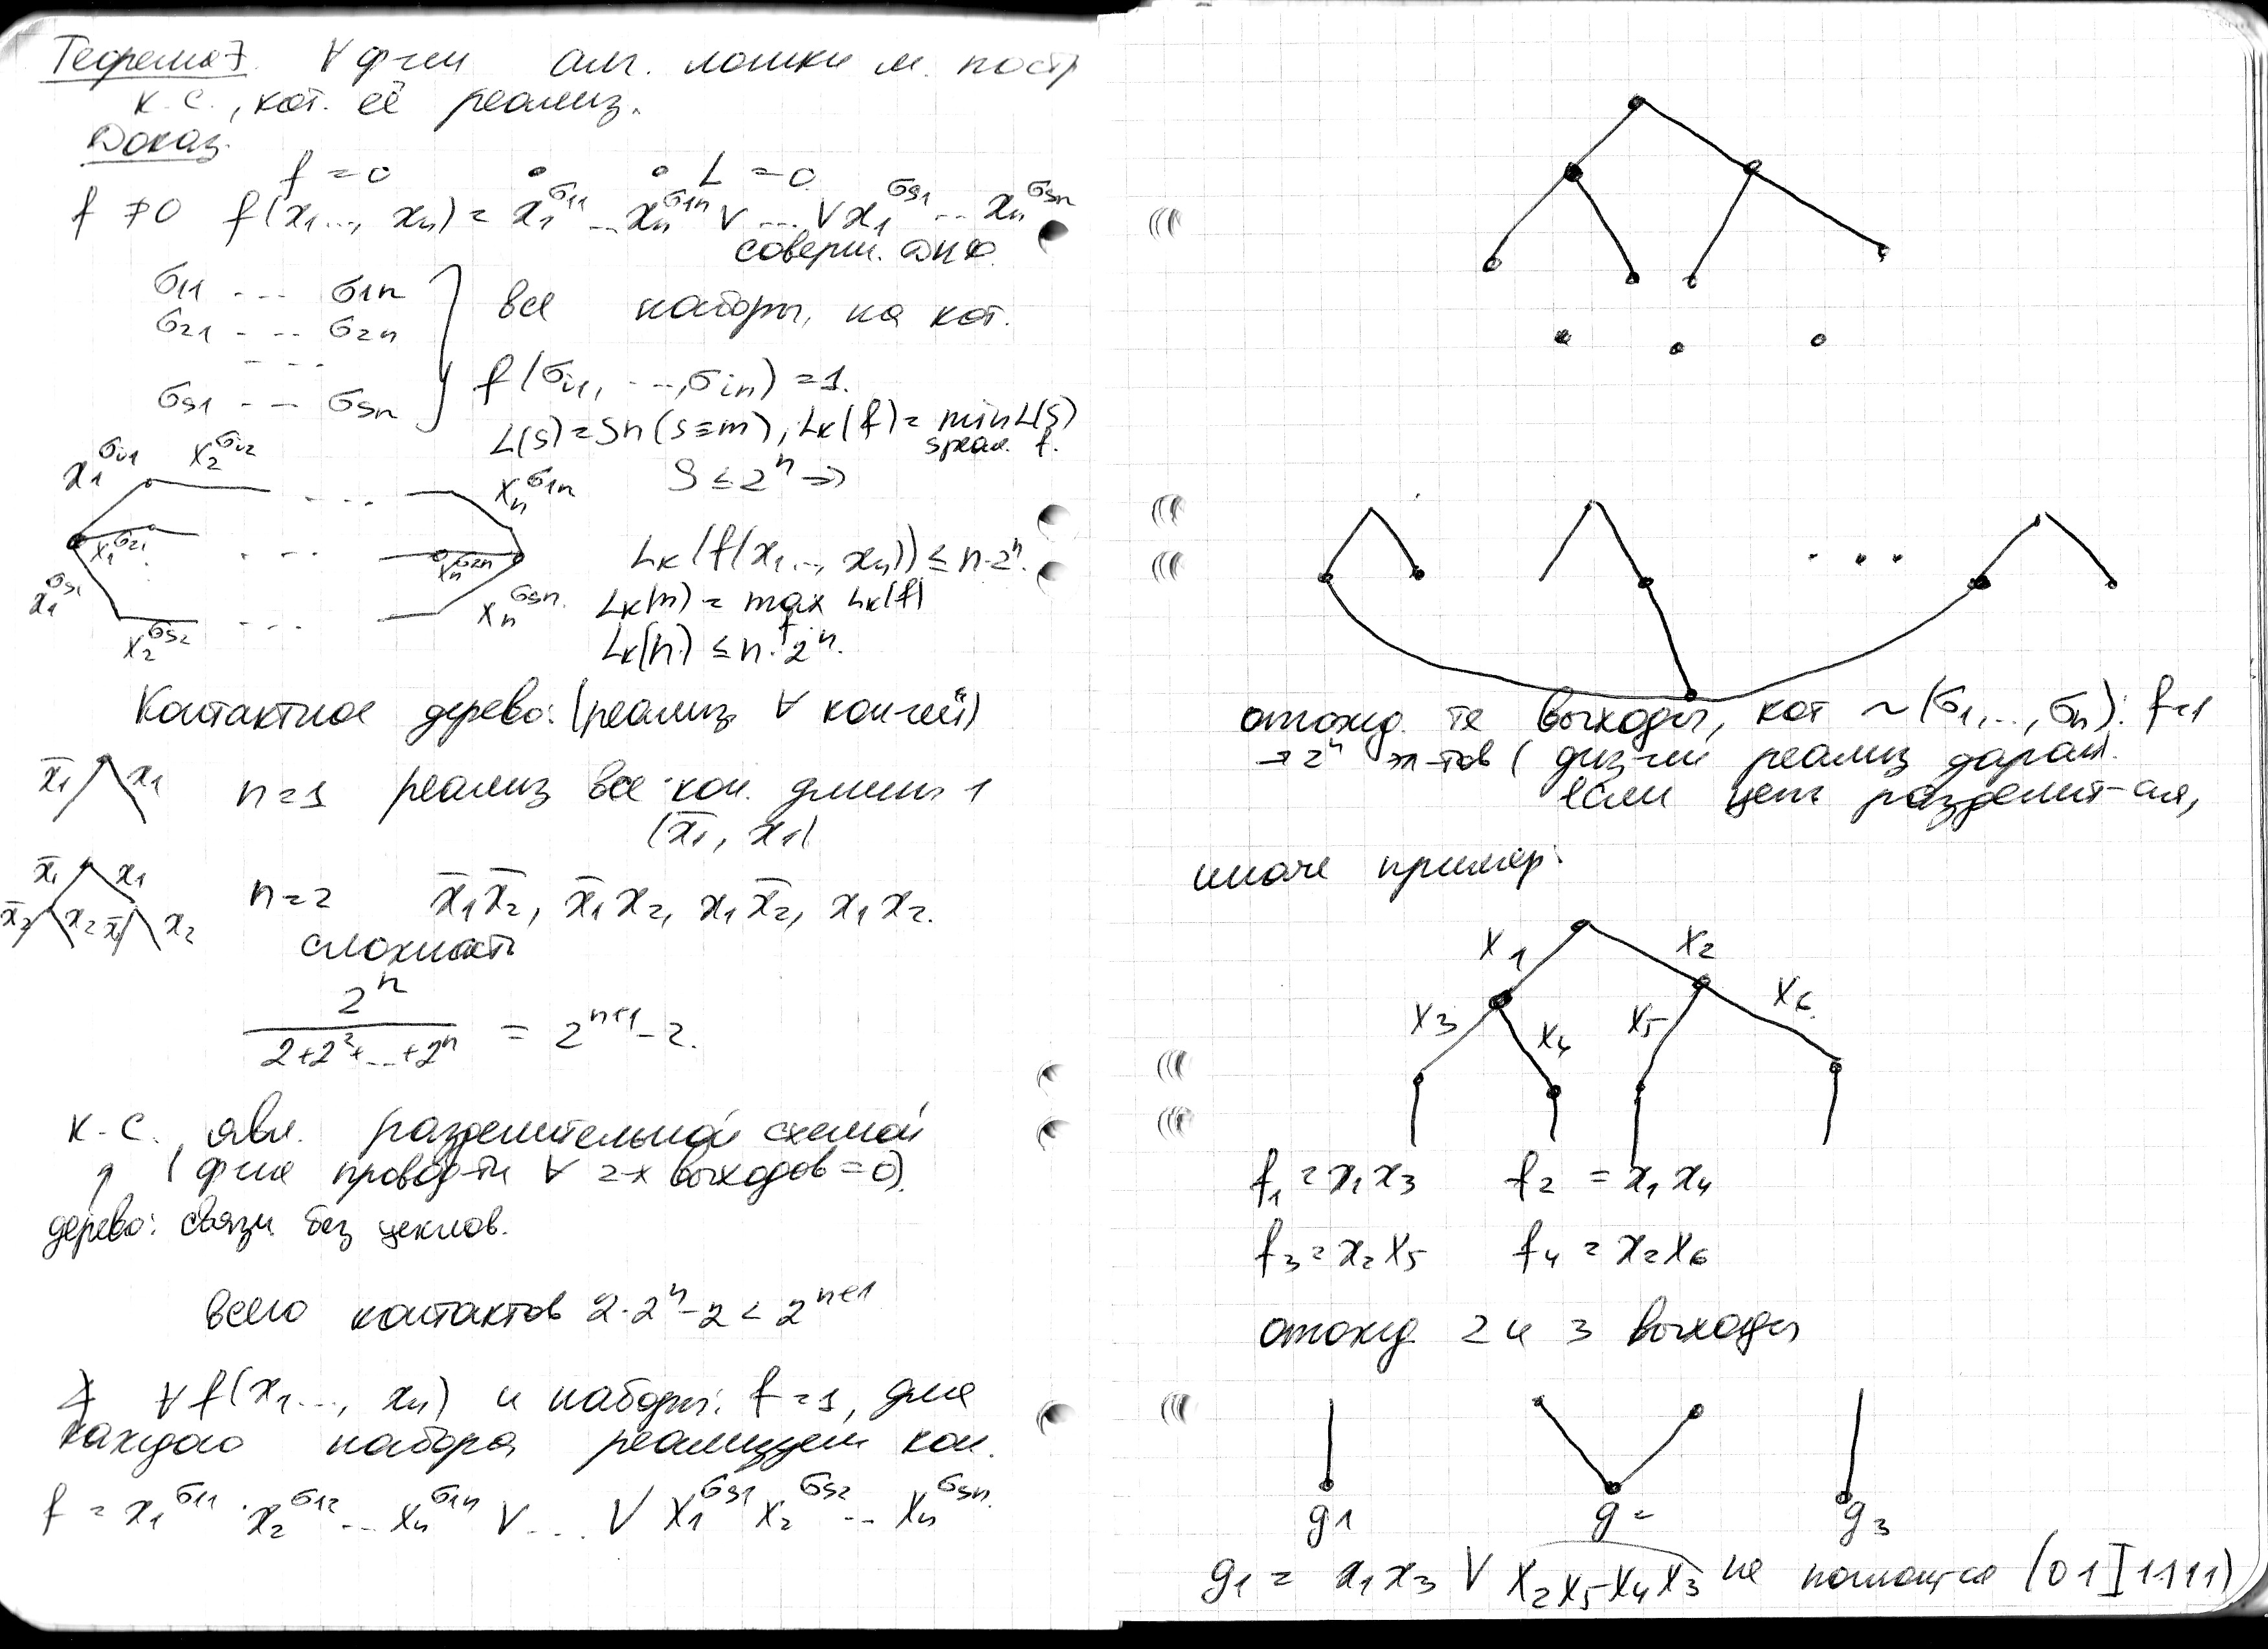 Теорема 7. ∀ ф-ии алг. логики м. постр
к.с., кот. её реализ.
Доказ.
f = 0 L = 0
f ≠ 0 f(x₁..., xₙ) = x₁^σ₁₁ ... xₙ^σ₁ₙ ∨ ... ∨ x₁^σₛ₁ ... xₙ^σₛₙ
соверш. ДНФ.
σ₁₁ ... σ₁ₙ
σ₂₁ ... σ₂ₙ
все наборы, на кот.
. . . .
σₛ₁ ... σₛₙ
f(σᵢ₁, ..., σᵢₙ) = 1.
L(S) = Sn (S ≡ m), Lₖ(f) = min L(S)
S реал. f.
S ≤ 2ⁿ ⇒
x₁^σᵢ₁ x₂^σᵢ₂ . . . xₙ^σ₁ₙ
x₁^σ₂₁ . . . xₙ^σ₂ₙ
Lₖ(f(x₁..., xₙ)) ≤ n·2ⁿ.
x₁^σₛ₁ x₂^σₛ₂ . . . xₙ^σₛₙ.
Lₖ(n) = max Lₖ(f)
f
Lₖ(n) ≤ n·2ⁿ.
Контактное дерево: (реализ ∀ кон-ций)
x̄₁ x₁ n=1 реализ все кон. длины 1
(x̄₁, x₁)
x̄₁ x₁
x̄₂ x₂ x̄₂ x₂ n=2 x̄₁x̄₂, x̄₁x₂, x₁x̄₂, x₁x₂.
сложность
2ⁿ
2+2²+...+2ⁿ = 2ⁿ⁺¹ - 2.
К.С. явл. разделительной схемой
(ф-ия провод-ти ∀ 2-х выходов = 0).
дерево: связн. без циклов.
всего контактов 2·2ⁿ-2 < 2ⁿ⁺¹
∀ f(x₁..., xₙ) и наборы: f=1, для
каждого набора реализуем кон.
f = x₁^σ₁₁ · x₂^σ₁₂ ... xₙ^σ₁ₙ ∨ ... ∨ x₁^σₛ₁ x₂^σₛ₂ ... xₙ^σₛₙ.
. . .
отожд. те выходы, кот ~ (σ₁, ..., σₙ): f=1
→ 2ⁿ эл-тов (
если цепь разделит-ая,
иначе пример:
x₁ x₂
x₃ x₄ x₅ x₆
f₁ = x₁x₃ f₂ = x₁x₄
f₃ = x₂x₅ f₄ = x₂x₆
отожд 2 и 3 выходы
g₁ g₂ g₃
g₁ = x₁x₃ ∨ x₂x₅x₄x₃ не (01 1111)